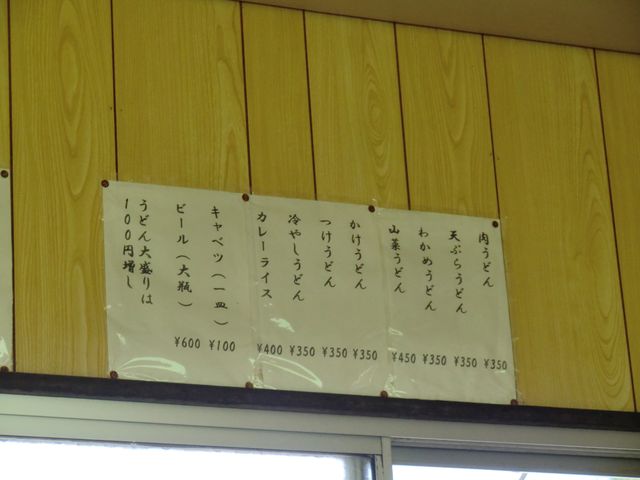 肉うどん ¥350
天ぷらうどん ¥350
わかめうどん ¥350
山菜うどん ¥450
かけうどん ¥350
つけうどん ¥350
冷やしうどん ¥350
カレーライス ¥400
キャベツ(一皿) ¥100
ビール(大瓶) ¥600
うどん大盛りは
100円増し